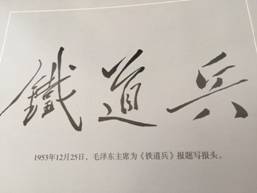 鐵道兵
1953年12月25日，毛泽东主席为《铁道兵》报题写报头。